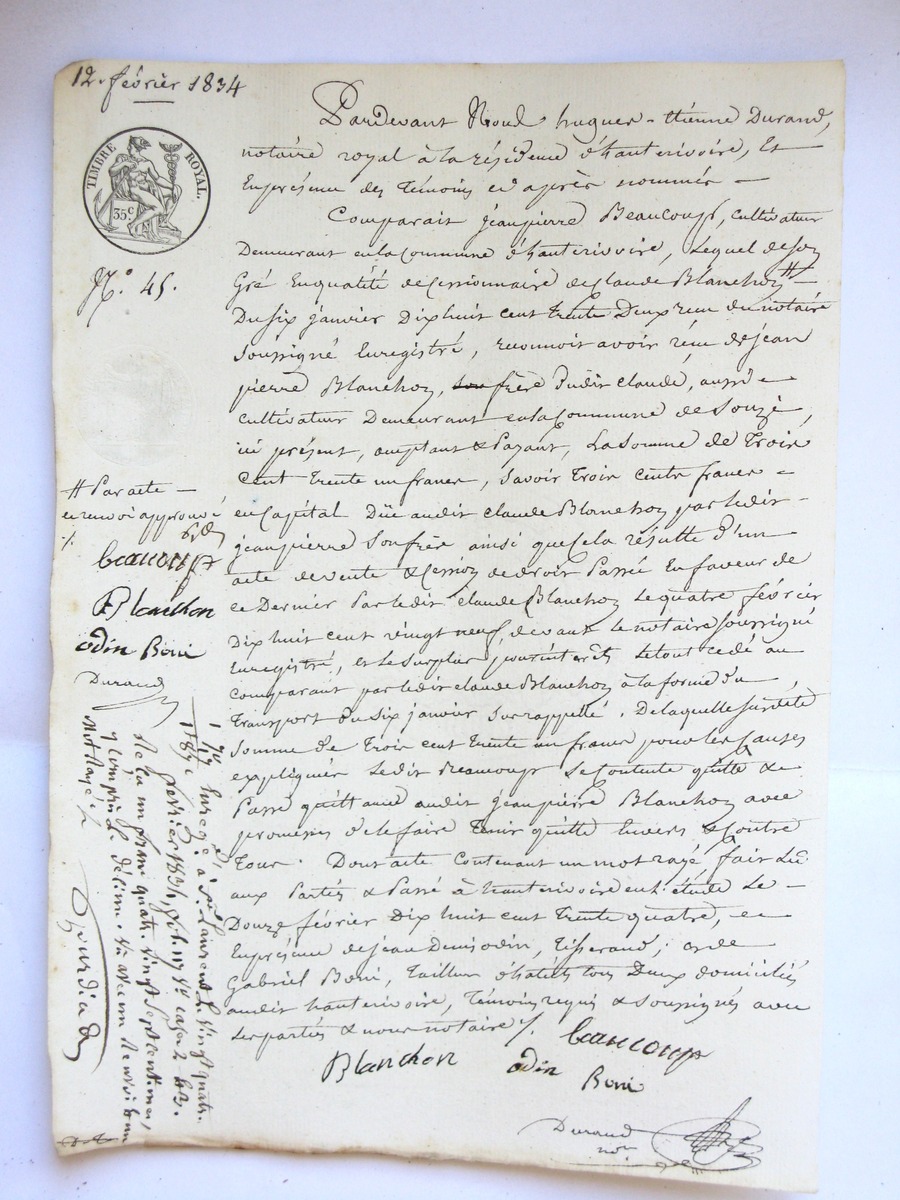 12. février 1834
TIMBRE ROYAL.
35c
No. 45.
Pardevant Nous hugues-étienne Durand,
notaire royal à la résidence d'hauterivoire, Et
En présence des Témoins ci après nommés —
Comparait jeanpierre Beaucoup, cultivateur
Demeurant en la Commune d'hauterivoire, Lequel de son
Gré En qualité de Cessionnaire de Claude Blanchon #
Du Six janvier Dix huit cent trente Deux recu du notaire
Soussigné Enregistré, reconnoit avoir récu de jean
pierre Blanchon, son frère dudit claude, aussi
Cultivateur Demeurant en la Commune de Souzi,
ici présent, acceptant & Payant, La Somme de Trois
Cent Trente un francs, Savoir Trois Cents francs
en Capital Düe audit claude Blanchon par ledit
jeanpierre Son frère ainsi que Cela résulte d'un
acte de vente & Cession de droit Passée En faveur de
ce Dernier Par ledit claude Blanchon Le quatre février
Dix huit cent vingt neuf, devant le notaire Soussigné
Enregistré, et le Surplus pour interêts Le tout cedé au
Comparant par ledit claude Blanchon à la forme du
Transport du Six janvier Sus rappellé. De laquelle Susditte
Somme de Trois cent Trente un francs pour les Causes
expliquées Ledit Beaucoup Se Contente quitte &
Passe quittance audit jeanpierre Blanchon avec
promesses de le faire Tenir quitte Envers & Contre
Tous. Dont acte Contenant un mot rayé fait Lu
aux Parties & Passé à hauterivoire en l'étude Le
Douze février Dix huit Cent Trente quatre, en
En présence de jean Denis odin, Tisserand, et de
Gabriel Boni, Tailleur d'habits tous Deux domiciliés
audit hauterivoire, Témoins requis & Soussignés avec
Les parties & nous notaire ./.
# Par acte —
en renvoi approuvé
./.
beaucoup
Blanchon
odin Boni
Durand
Enregé. à St. Laurent Le vingt quatre
février 1834, fol. 117 Vo. case 2
Reçu un franc quatre vingt Sept centimes,
y compris Le décime
mot Rayé
Blanchon
beaucoup
odin
Boni
Durand
nore